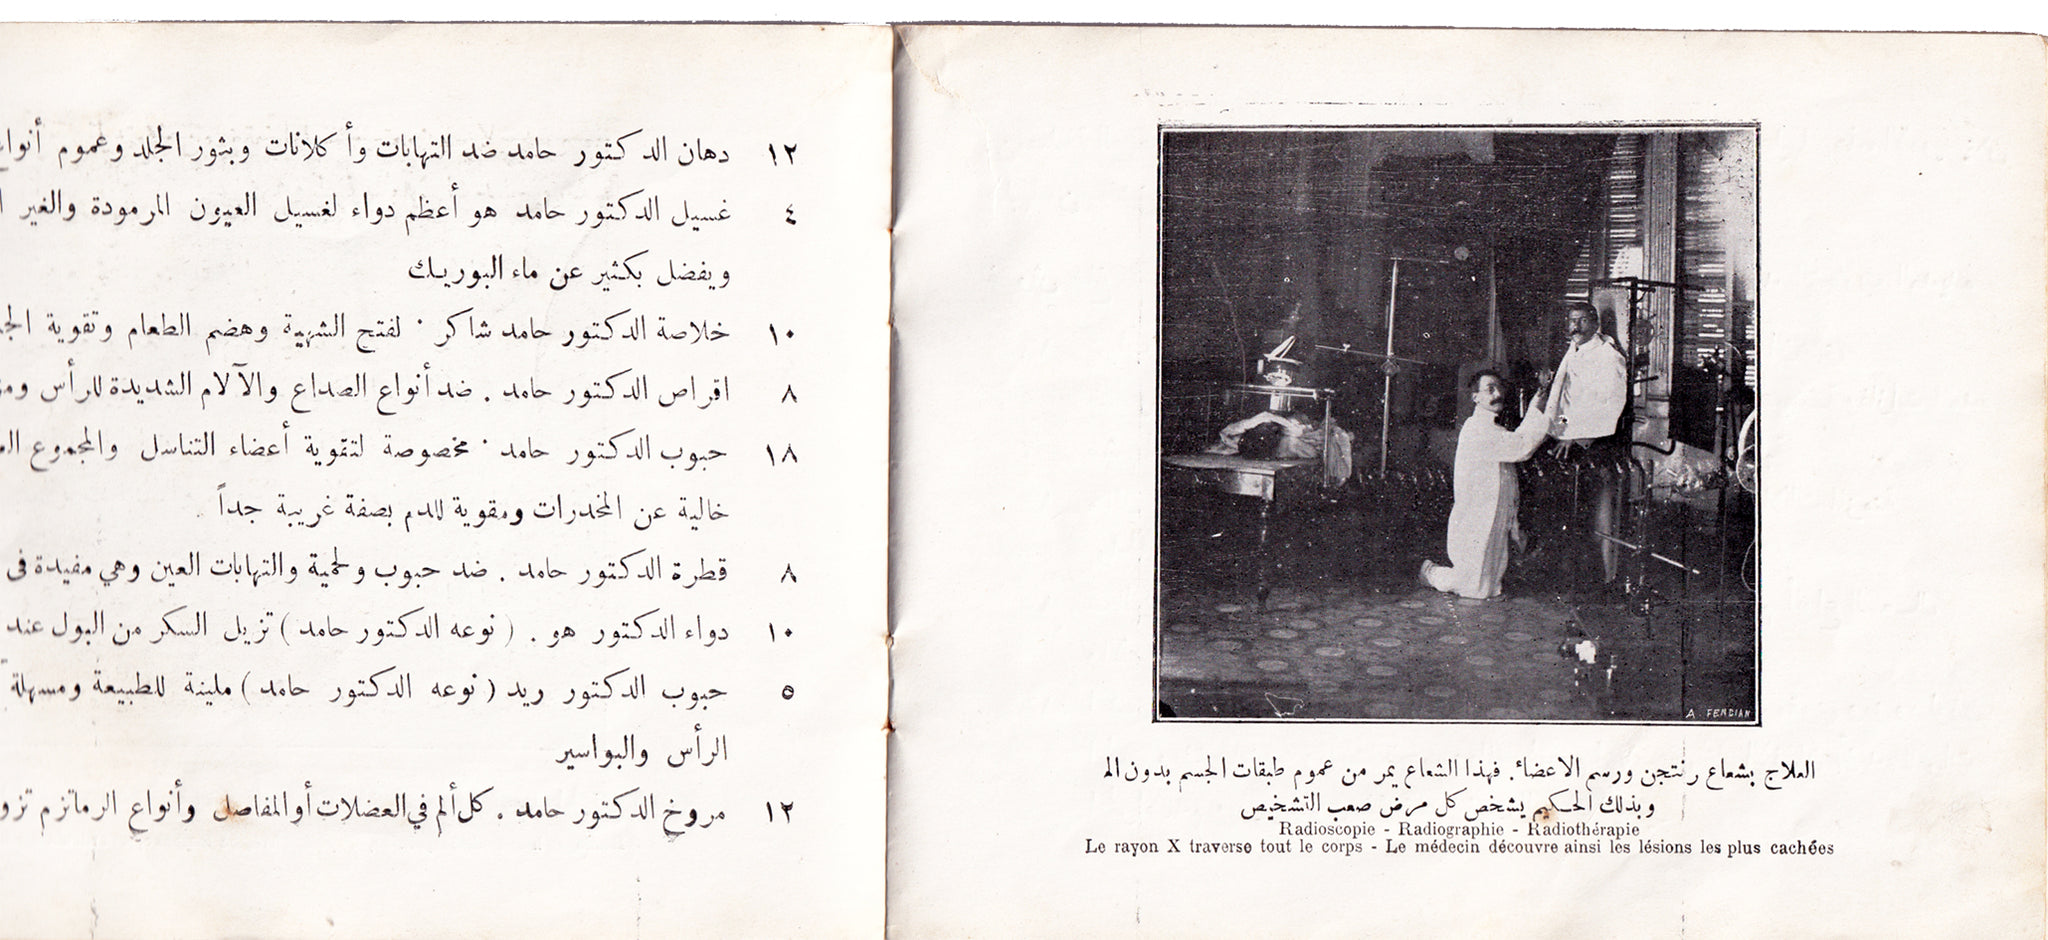 ١٢ دهان الدكتور حامد ضد التهابات وأكلانات وبثور الجلد وعموم أنواع
٤ غسيل الدكتور حامد هو أعظم دواء لغسيل العيون المرمودة والغير
ويفضل بكثير عن ماء البوريك
١٠ خلاصة الدكتور حامد شاكر . لفتح الشهية وهضم الطعام وتقوية
٨ اقراص الدكتور حامد . ضد أنواع الصداع والآلام الشديدة للرأس
١٨ حبوب الدكتور حامد . مخصوصة لتقوية أعضاء التناسل والمجموع
خالية عن المخدرات ومقوية للدم بصفة غريبة جداً .
٨ قطرة الدكتور حامد . ضد حبوب ولحمية والتهابات العين وهي مفيدة فى
١٠ دواء الدكتور هو . ( نوعه الدكتور حامد ) تزيل السكر من البول عند
٥ حبوب الدكتور ريد ( نوعه الدكتور حامد ) ملينة للطبيعة ومسهلة
الرأس والبواسير
١٢ مروخ الدكتور حامد . كل ألم في العضلات أو المفاصل وأنواع الرماتزم
A. FENDIAN
العلاج بشعاع رنتجن ورسم الاعضاء . فهذا الشعاع يمر من عموم طبقات الجسم بدون الم
وبذلك الحكيم يشخص كل مرض صعب التشخيص
Radioscopie - Radiographie - Radiothérapie
Le rayon X traverse tout le corps - Le médecin découvre ainsi les lésions les plus cachées